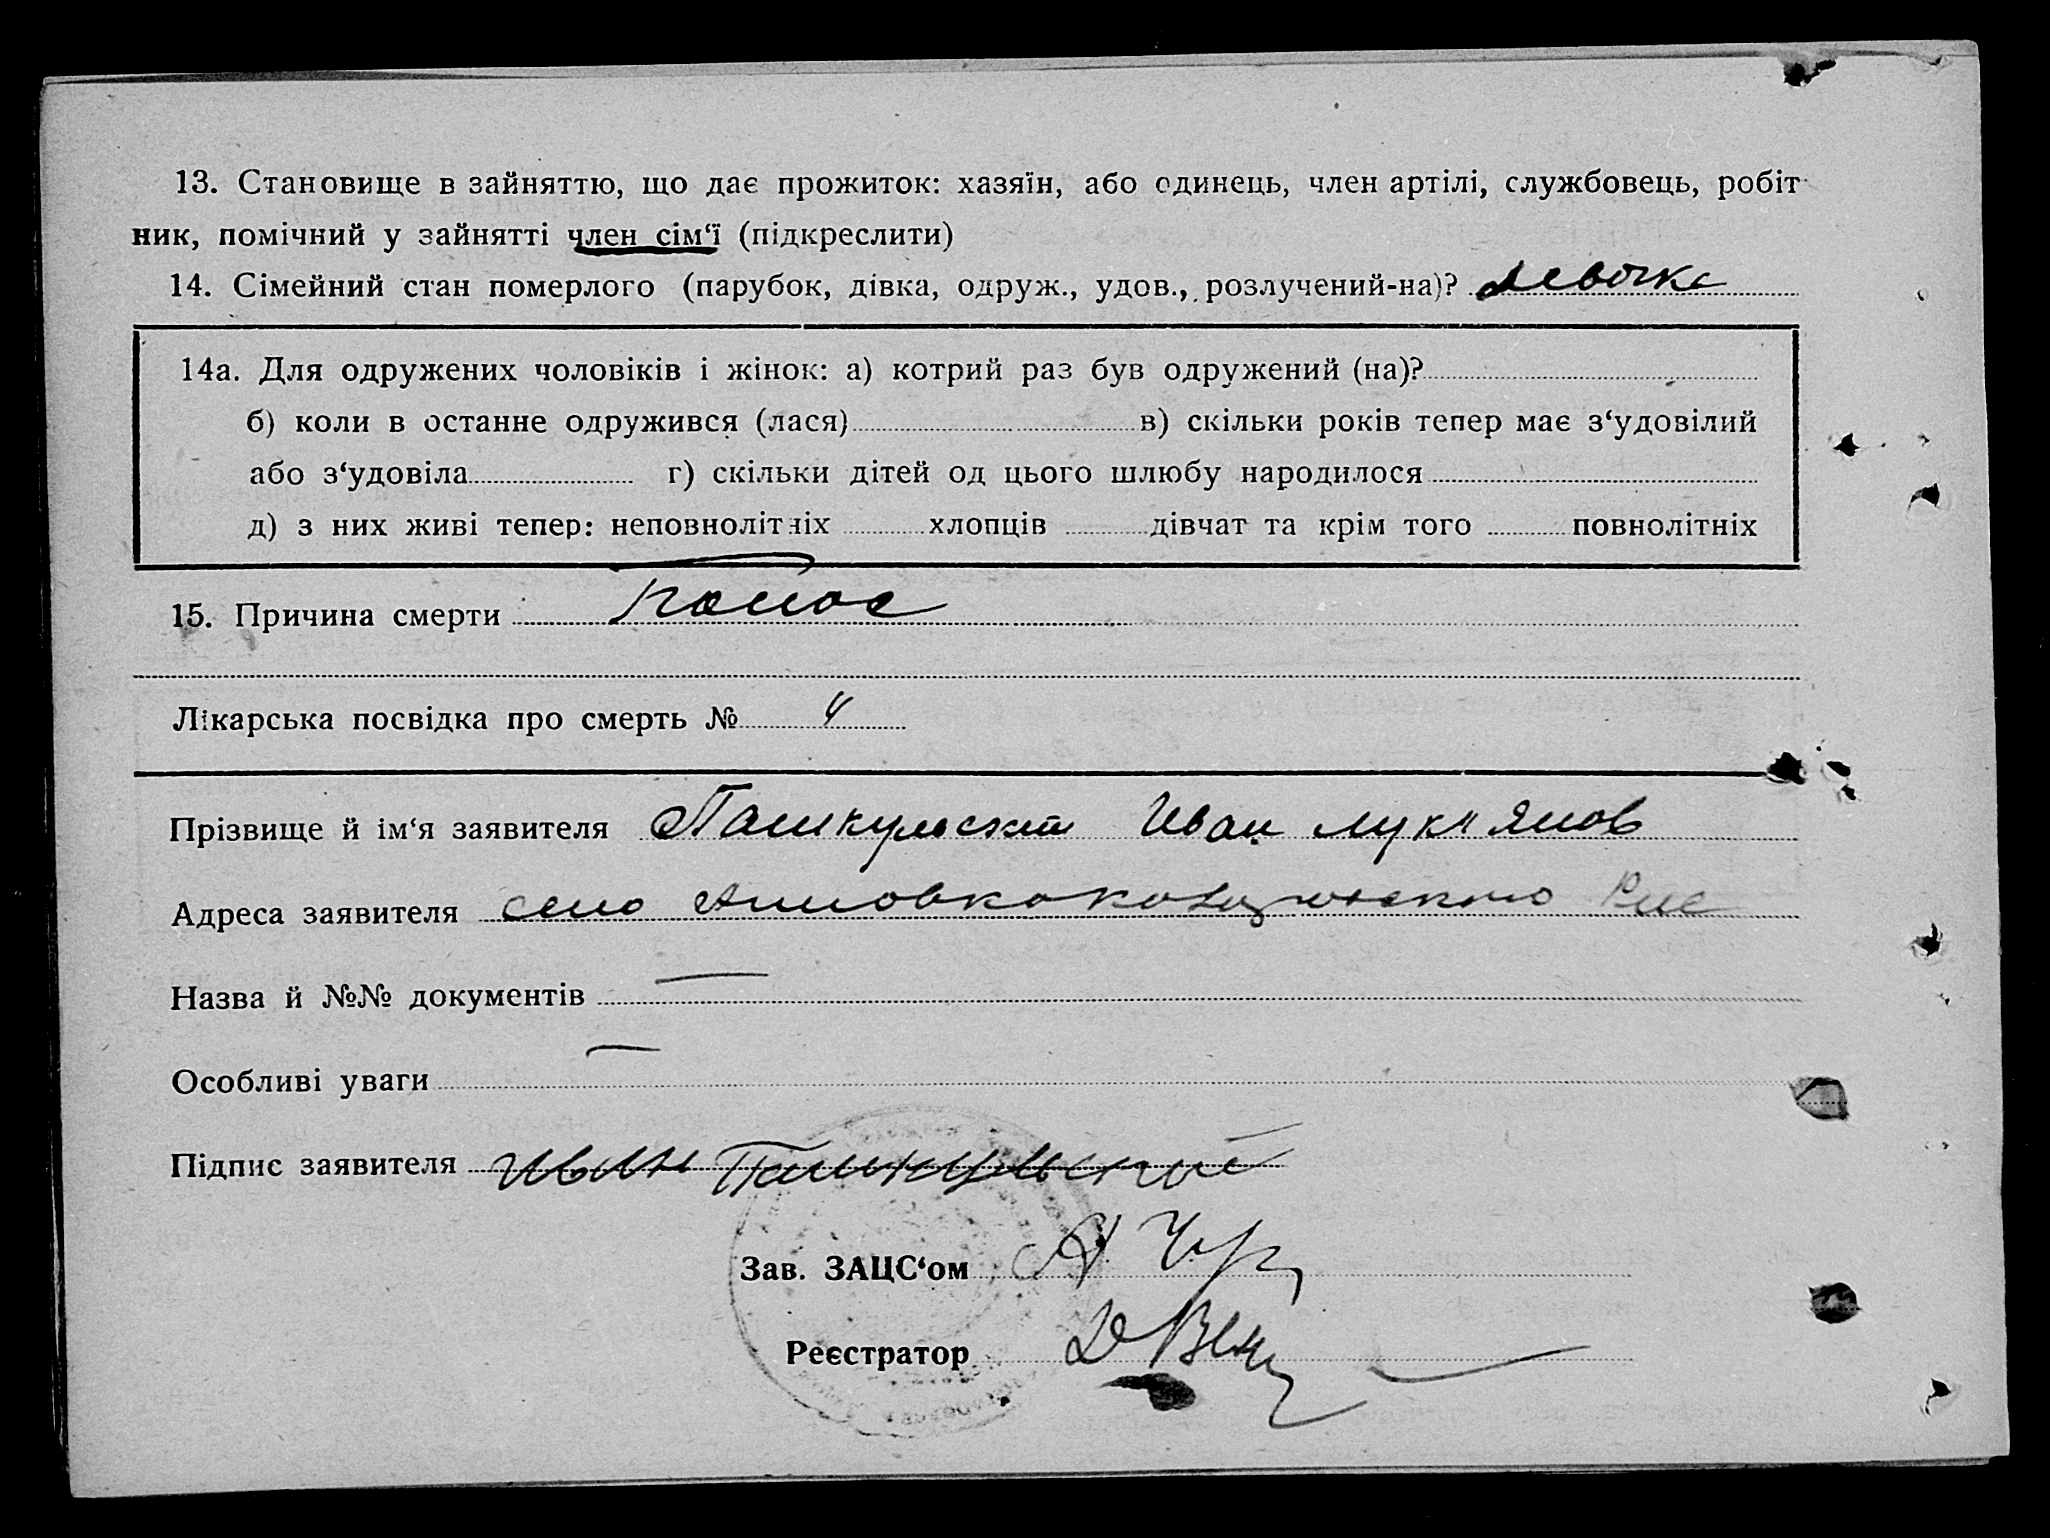 13. Становище в зайняттю, що дає прожиток: хазяїн, або одинець, член артілі, службовець, робіт
ник, помічний у зайнятті член сім‘ї (підкреслити)
14. Сімейний стан померлого (парубок, дівка, одруж., удов., розлучений-на)? девочка
14а. Для одружених чоловіків і жінок: а) котрий раз був одружений (на)?
б) коли в останне одружився (лася) в) скільки років тепер має з‘удовілий
або з‘удовіла г) скільки дітей од цього шлюбу народилося
д) з них живі тепер: неповнолітніх хлопців дівчат та крім того повнолітніх
15. Причина смерти Понос
Лікарська посвідка про смерть №
Прізвище й ім‘я заявителя Пашкульский Иван Лукьянов
Адреса заявителя село
Назва й №№ документів —
Особливі уваги —
Підпис заявителя Иван Пашкульский
Зав. ЗАЦС‘ом
Реєстратор